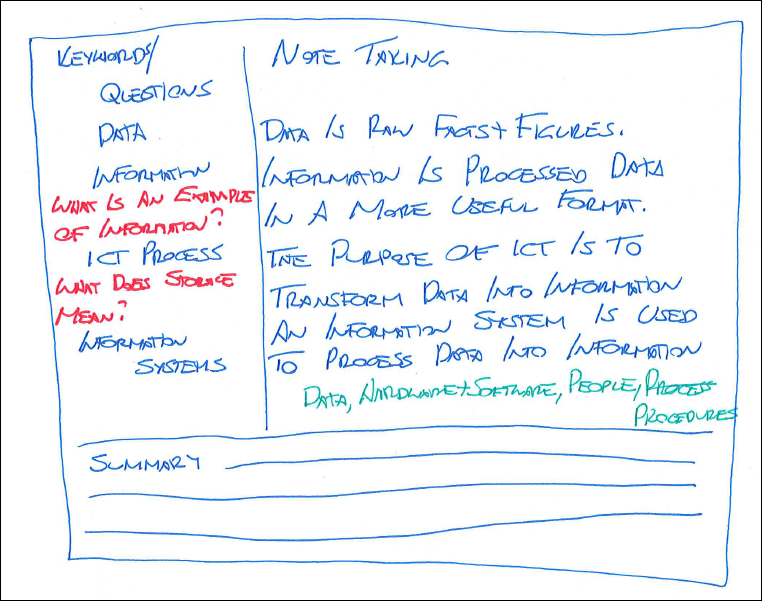 KEYWORDS/
QUESTIONS
DATA
INFORMATION
WHAT IS AN EXAMPLE
OF INFORMATION?
ICT PROCESS
WHAT DOES STORAGE
MEAN?
INFORMATION
SYSTEMS
NOTE TAKING
DATA IS RAW FACTS + FIGURES.
INFORMATION IS PROCESSED DATA
IN A MORE USEFUL FORMAT.
THE PURPOSE OF ICT IS TO
TRANSFORM DATA INTO INFORMATION
AN INFORMATION SYSTEM IS USED
TO PROCESS DATA INTO INFORMATION
DATA, HARDWARE + SOFTWARE, PEOPLE, PROCESS
PROCEDURES
SUMMARY